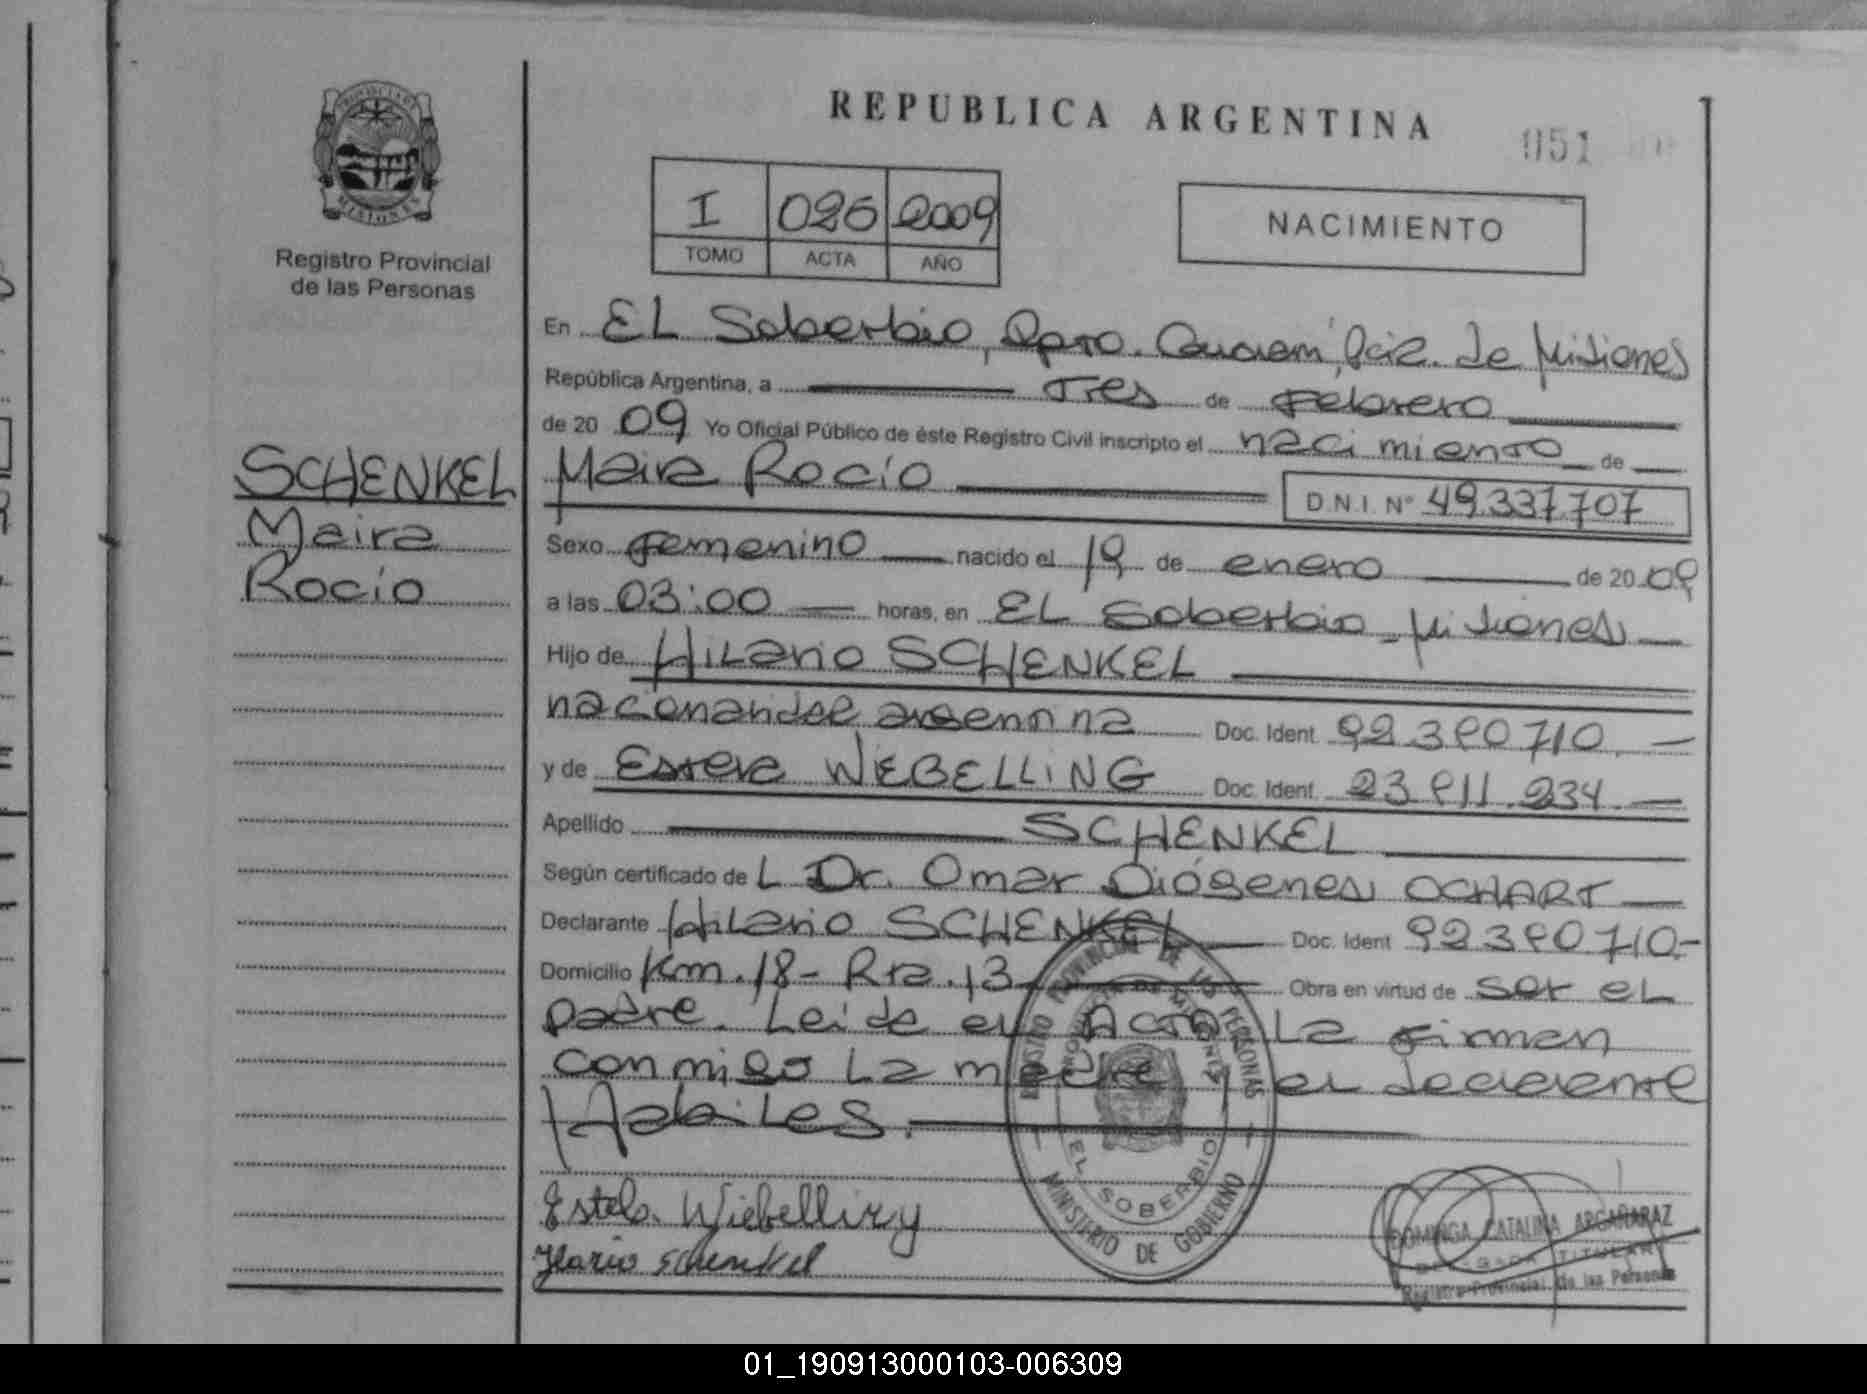 REPUBLICA ARGENTINA
051
PROVINCIA DE
MISIONES
Registro Provincial
de las Personas
I 026 2009
TOMO ACTA AÑO
NACIMIENTO
En EL Soberbio, Dpto. Guaraní, Pcia. de Misiones
República Argentina, a Tres de Febrero
de 20 09 Yo Oficial Público de éste Registro Civil inscripto el nacimiento de
SCHENKEL
Maira
Rocío
Maira Rocío D.N.I. Nº 49.337.707
Sexo Femenino nacido el 19 de enero de 20 09
a las 03:00 horas, en EL Soberbio - Misiones
Hijo de Hilario SCHENKEL
nacionalidad argentina Doc. Ident. 92.380.710.-
y de Estela WEBELLING Doc. Ident. 23.811.234
Apellido SCHENKEL
Según certificado de L Dr. Omar Diógenes OCHART
Declarante Hilario SCHENKEL Doc. Ident 92.380.710.-
Domicilio Km. 18 - Rta. 13 Obra en virtud de ser eL
padre. Leida el Acta La firman
conmigo La madre y el declarante
Habiles.
REGISTRO PROVINCIAL DE LAS PERSONAS
PROVINCIA DE MISIONES
EL SOBERBIO
MINISTERIO DE GOBIERNO
Estela Wiebelling
Ilario Schenkel
DOMINGA CATALINA ARGAÑARAZ
DELEGADA TITULAR
Registro Provincial de las Personas
01_190913000103-006309